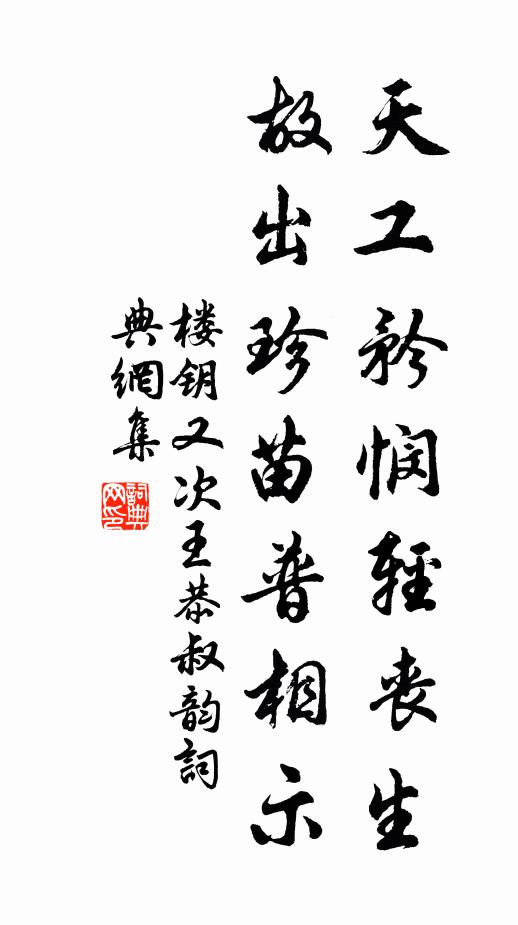 天工矜悯輕丧生
故出珍苗普相示
楼钥又次王恭叔韵詞
典網集
詞典
网印